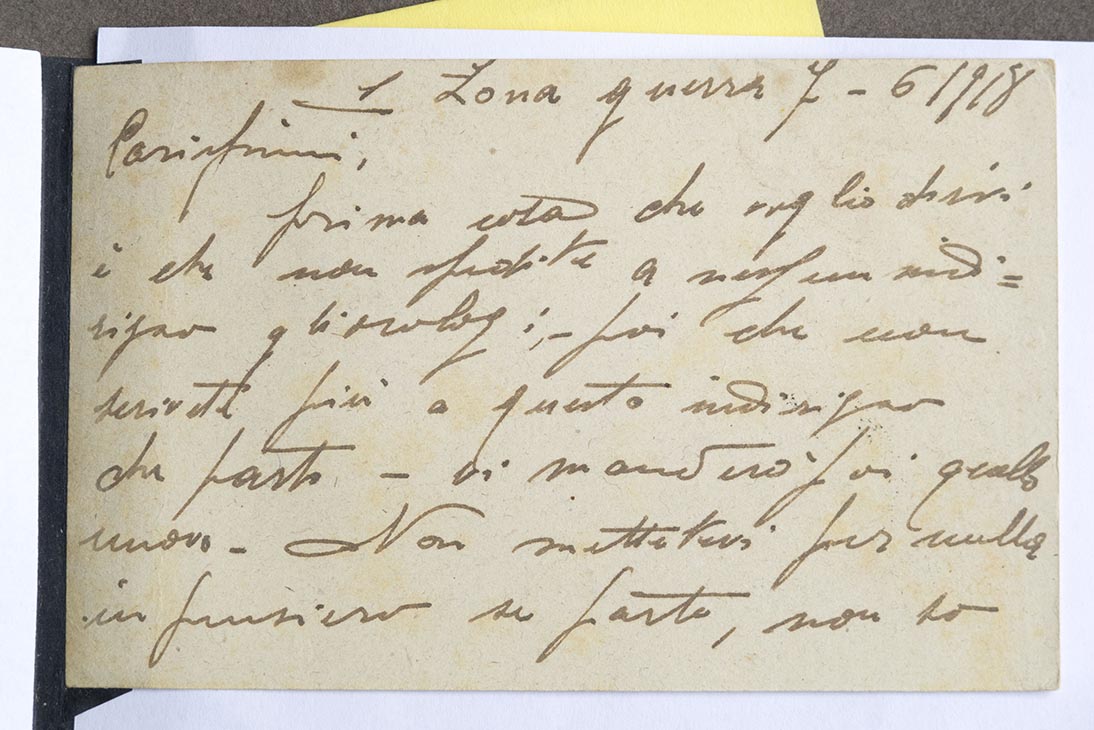 1 Zona guerra 7-6 1918
Carissimi,
prima cosa che voglio dirvi
è che non spedite a nessun indi=
rizzo gli orologi;- poi che non
scrivete più a questo indirizzo
che parto - vi manderò poi quello
nuovo - Non mettetevi per nulla
in pensiero se parto, non so